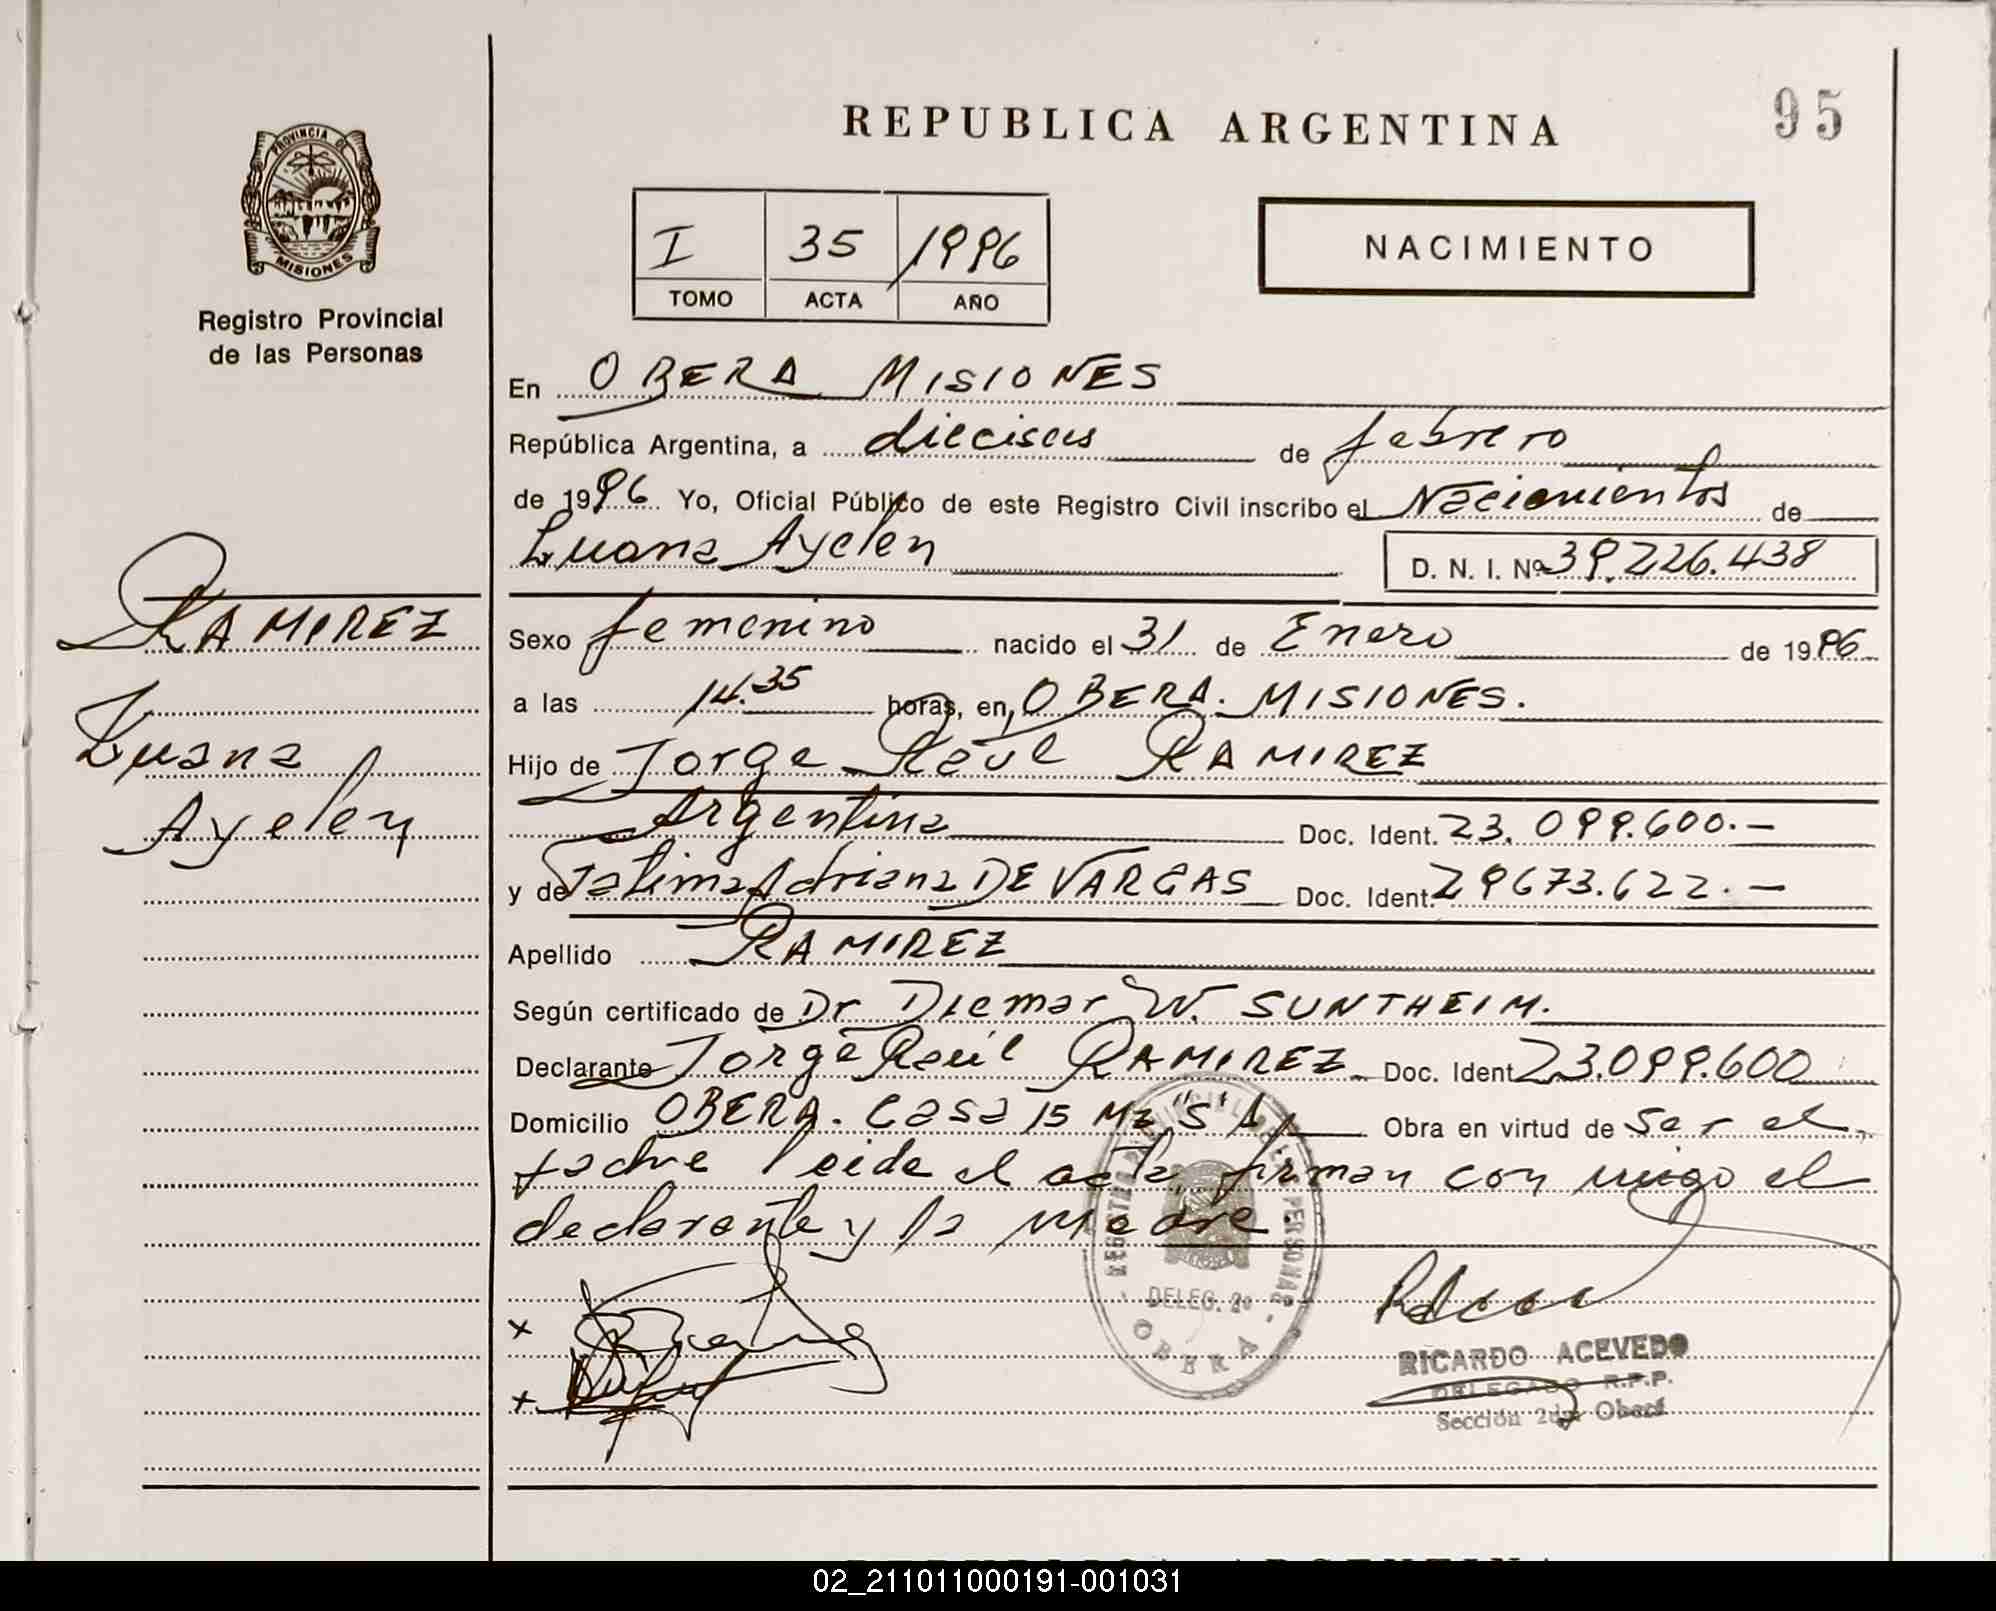 REPUBLICA ARGENTINA
95
PROVINCIA DE
MISIONES
Registro Provincial
de las Personas
I 35 1996
TOMO ACTA AÑO
NACIMIENTO
En OBERA MISIONES
República Argentina, a dieciseis de febrero
de 1996. Yo, Oficial Público de este Registro Civil inscribo el Nacimientos de
Luana Ayelen D. N. I. Nº 39.226.438
RAMIREZ
Luana
Ayelen
Sexo femenino nacido el 31 de Enero de 1996
a las 14.35 horas, en OBERA. MISIONES.
Hijo de Jorge Raúl RAMIREZ
Argentina Doc. Ident. 23.099.600.-
y de Adriana DE VARGAS Doc. Ident. 29673.622.-
Apellido RAMIREZ
Según certificado de Dr Diemar W. SUNTHEIM.
Declarante Jorge Raúl RAMIREZ Doc. Ident 23.099.600
Domicilio OBERA. Casa 15 Mz "S" Obra en virtud de ser el
padre leida el acta, firman con migo el
declarante y la madre.
REGISTRO PROVINCIAL DE LAS PERSONAS
DELEG. 2ª
OBERA
x
x
RICARDO ACEVEDO
DELEGADO R.P.P.
Sección 2da Oberá
REPUBLICA ARGENTINA
02_211011000191-001031